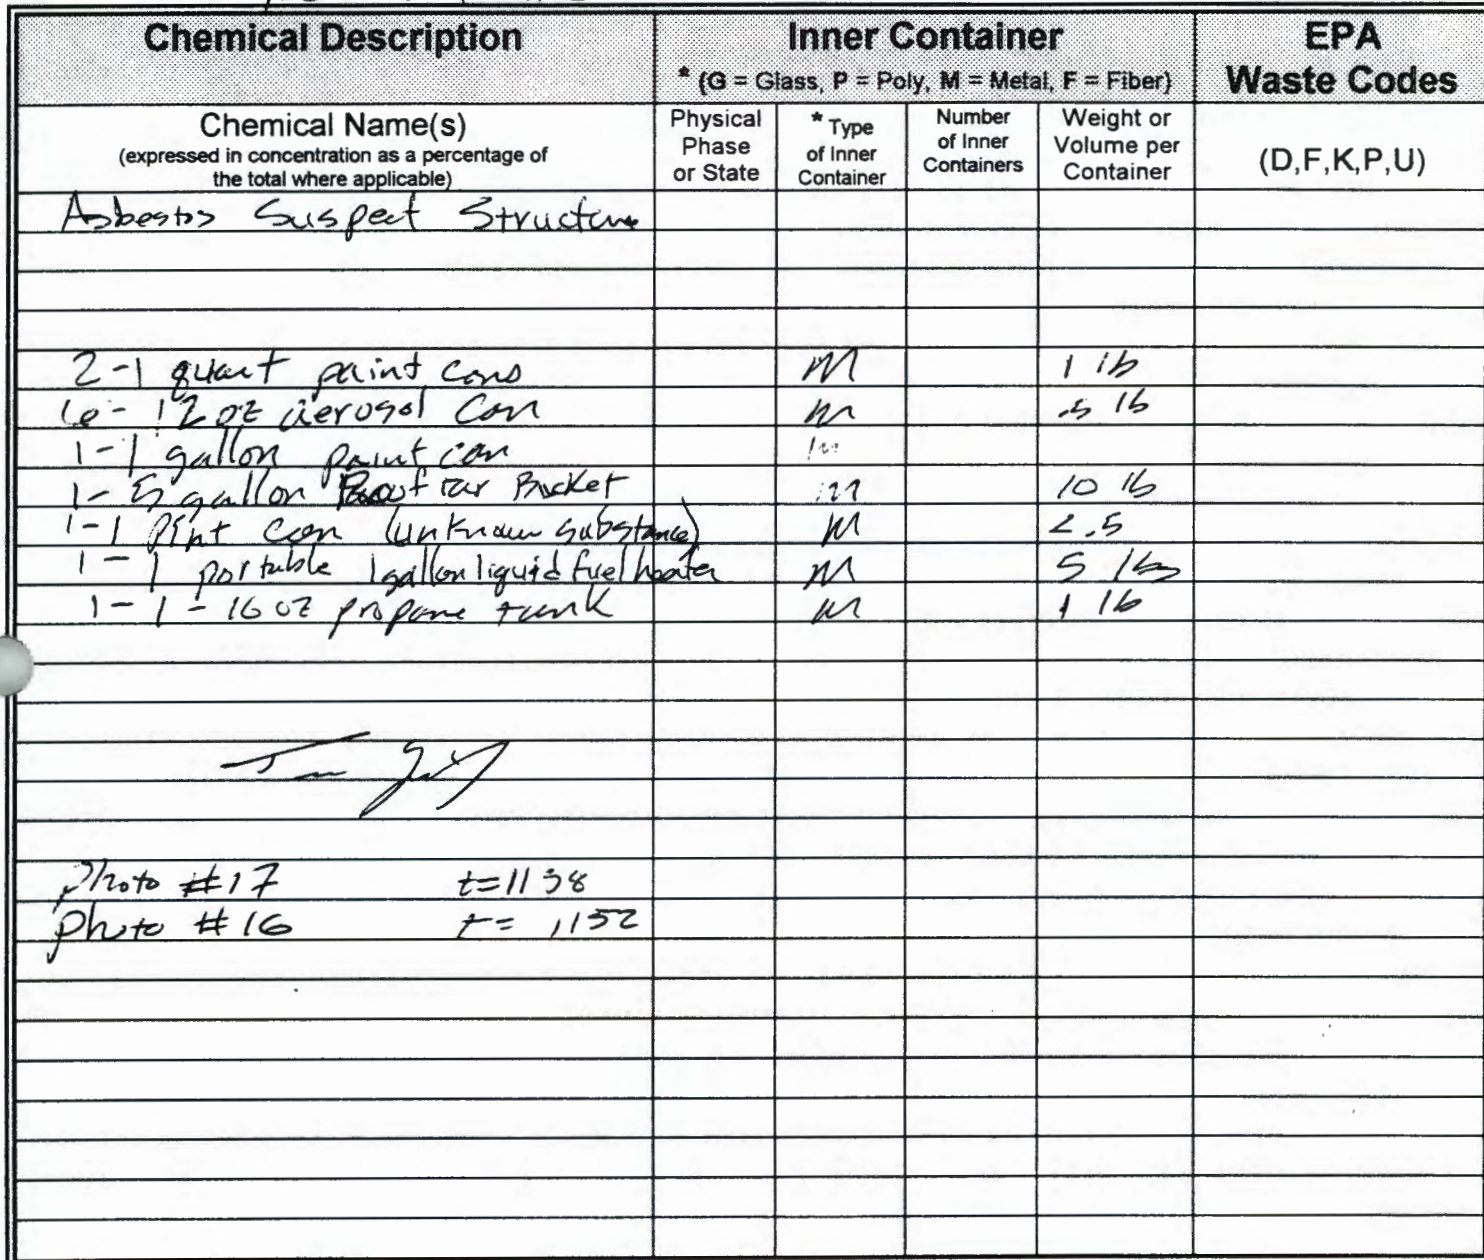 Chemical Description
Inner Container
* (G = Glass, P = Poly, M = Metal, F = Fiber)
EPA
Waste Codes
Chemical Name(s)
(expressed in concentration as a percentage of
the total where applicable)
Physical
Phase
or State
* Type
of Inner
Container
Number
of Inner
Containers
Weight or
Volume per
Container
(D,F,K,P,U)
Asbestos Suspect Structure
2-1 quart paint cans M 1 lb
6- 12 oz aerosol Can M .5 lb
1-1 gallon paint can M
1- 5 gallon tar Bucket M 10 lb
1-1 Pint can (unknown substance) M <.5
1-1 portable 1 gallon liquid fuel heater M 5 lbs
1-1-16 oz propane tank M 1 lb
Photo #17 t=1138
Photo #16 t= 1152